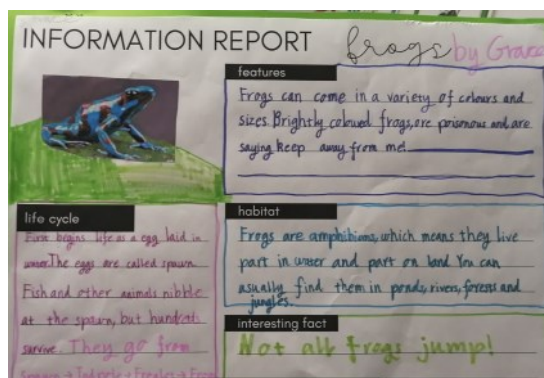 INFORMATION REPORT
frogs by Grace
features
Frogs can come in a variety of colours and
sizes. Brightly coloured frogs, are poisonous and, are
saying keep away from me!
life cycle
begins life as a egg laid in
water. The eggs are called spawn.
Fish and other animals nibble
at the spawn, but hundreds
survive. They go from
Spawn → Tadpole → Froglet → Frog
habitat
Frogs are amphibians, which means they live
part in water and part on land. You can
usually find them in ponds, rivers, forests and
jungles.
interesting fact
Not all frogs jump!